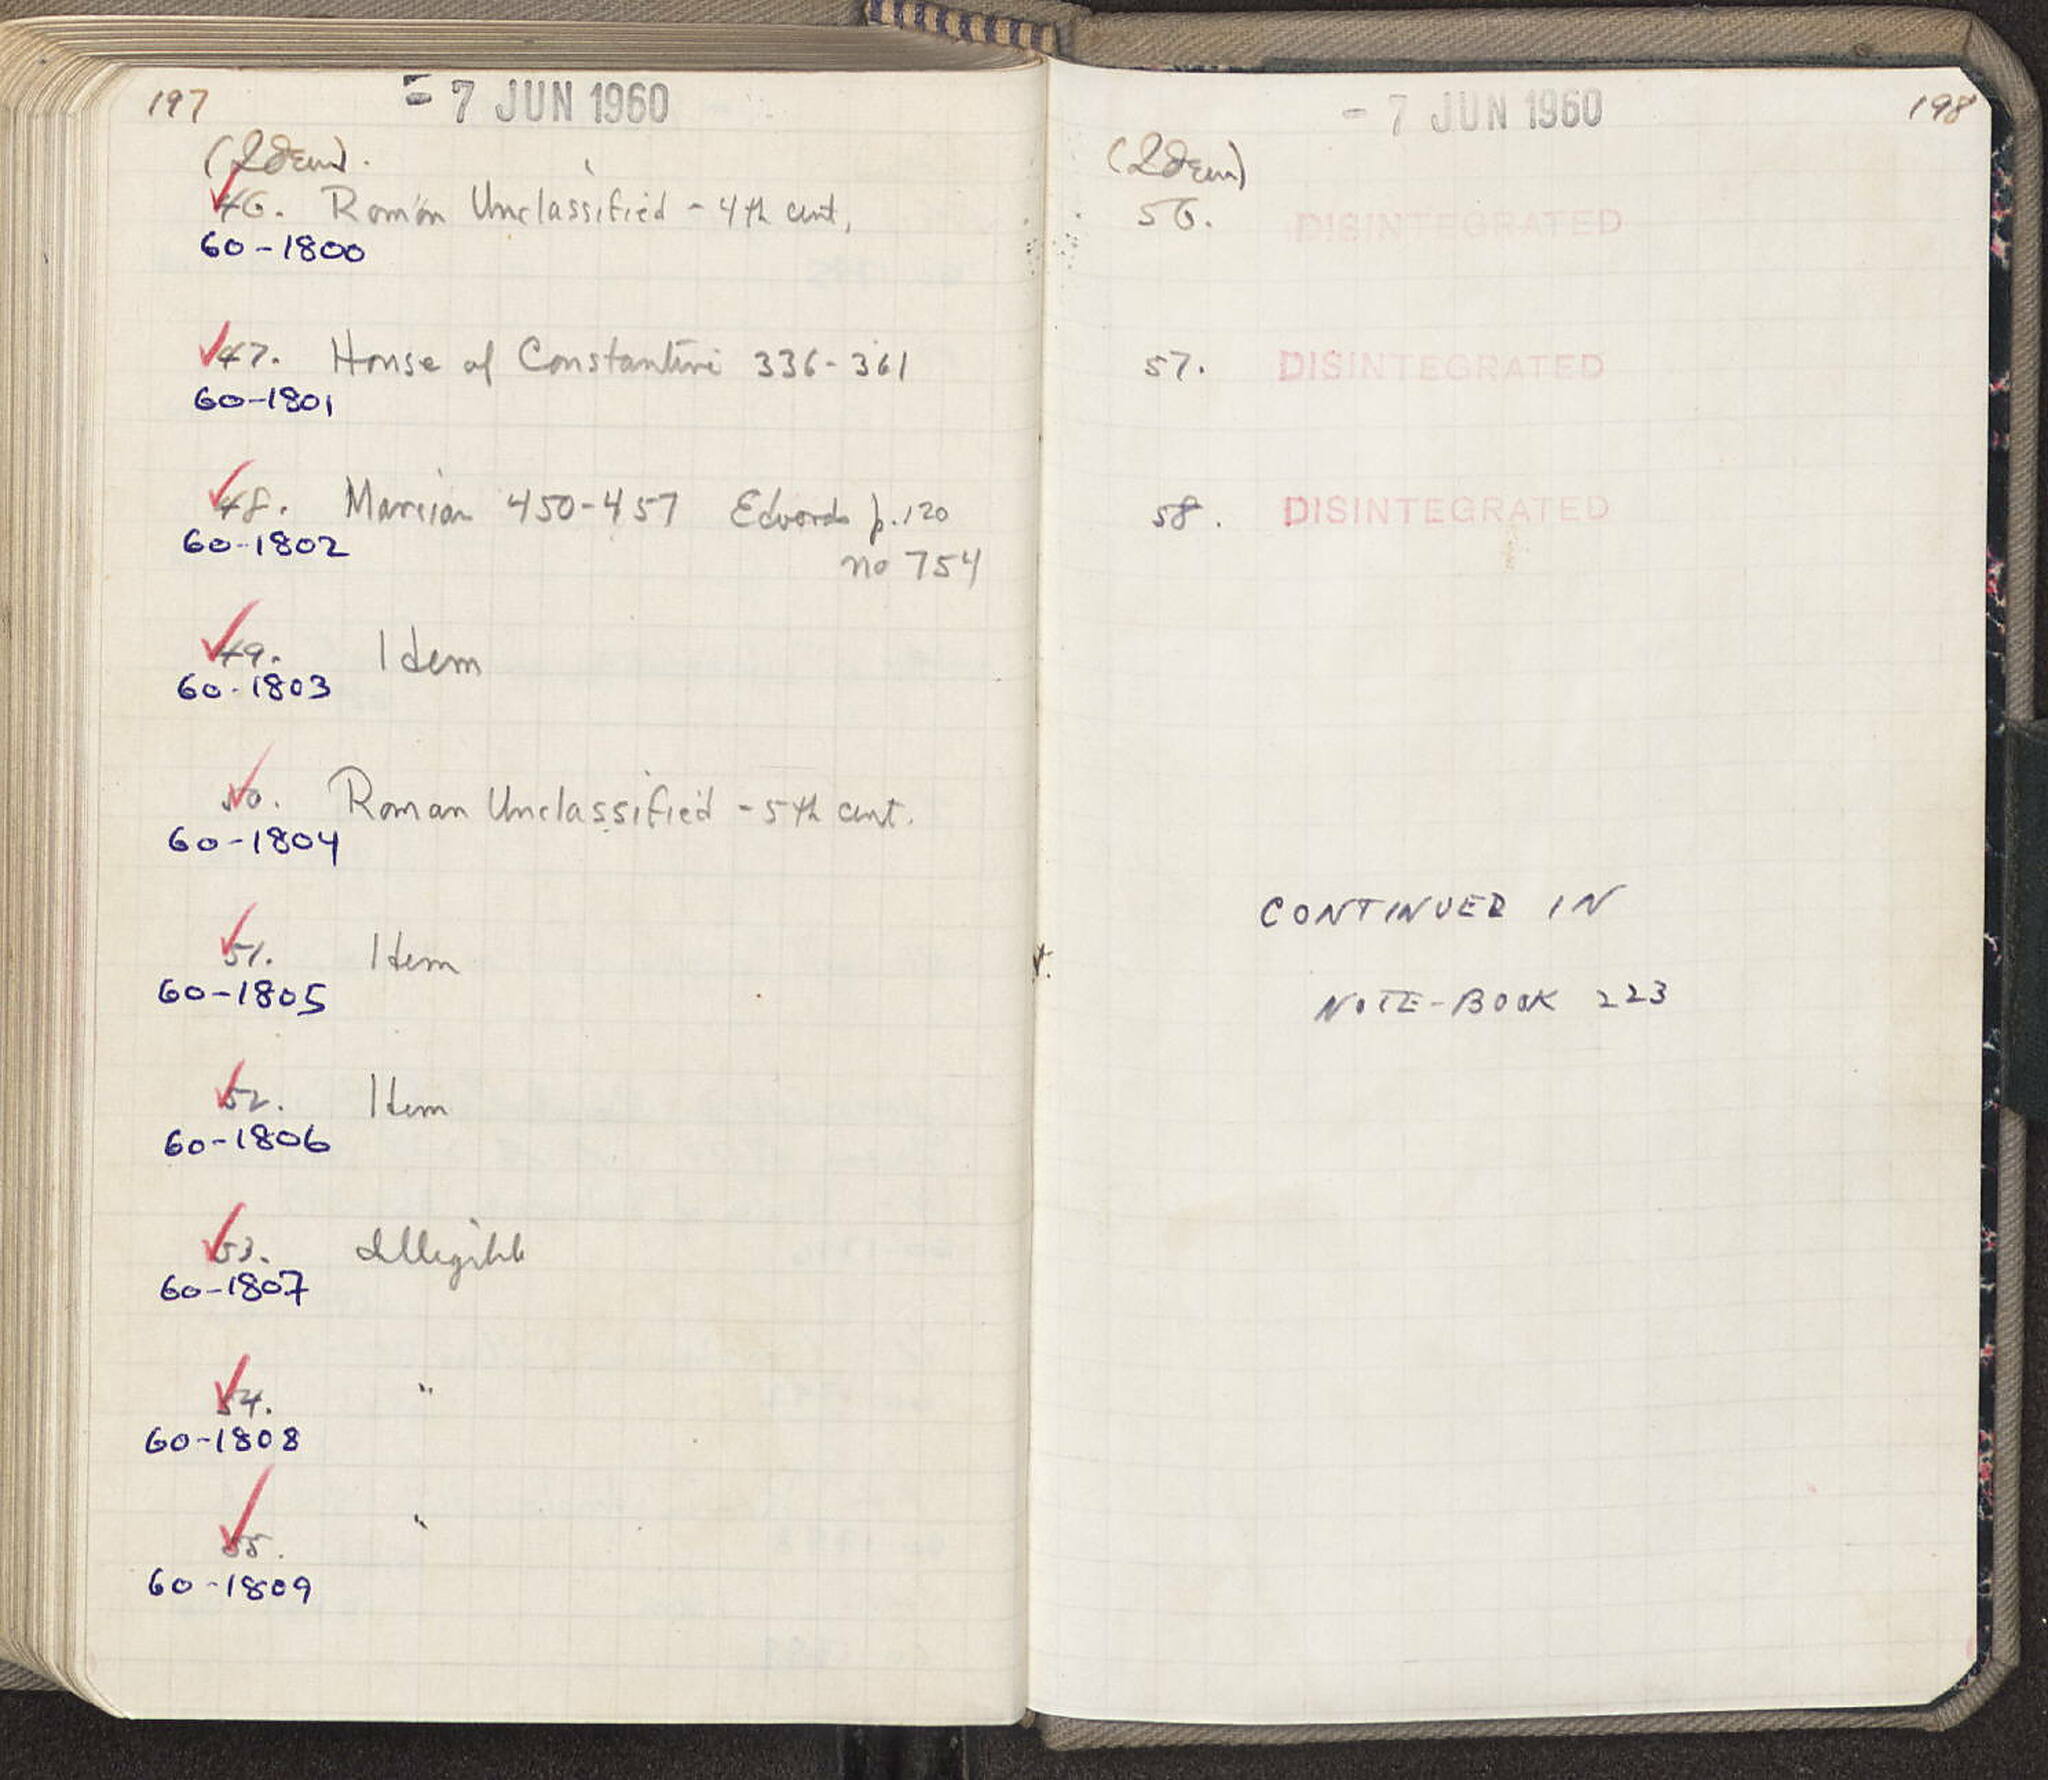 197
- 7 JUN 1960
(Idem).
46. Roman Unclassified - 4th cent.
60-1800
47. House of Constantine 336-361
60-1801
48. Marcian 450-457 Edwards p.120
no 754
60-1802
49. Idem
60-1803
50. Roman Unclassified - 5th cent.
60-1804
51. Idem
60-1805
52. Idem
60-1806
53. Illegible
60-1807
54. "
60-1808
55. "
60-1809
- 7 JUN 1960
198
(Idem)
56. DISINTEGRATED
57. DISINTEGRATED
58. DISINTEGRATED
CONTINUED IN
NOTE-BOOK 223